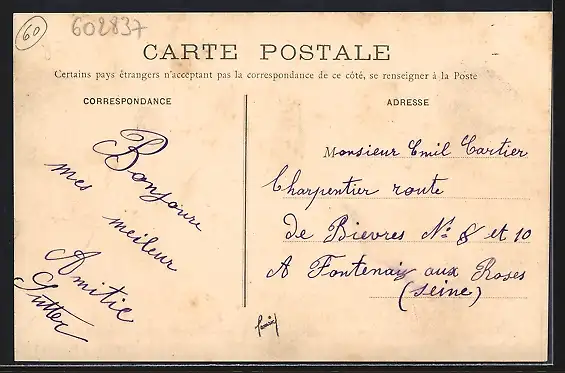 60
602837
CARTE POSTALE
Certains pays étrangers n'acceptant pas la correspondance de ce côté, se renseigner à la Poste
CORRESPONDANCE
Bonjour
mes meileur
Amitie
Sutter
ADRESSE
Monsieur Emil Cartier
Charpentier route
de Bievres No 8 et 10
A Fontenay aux Roses
(Seine)